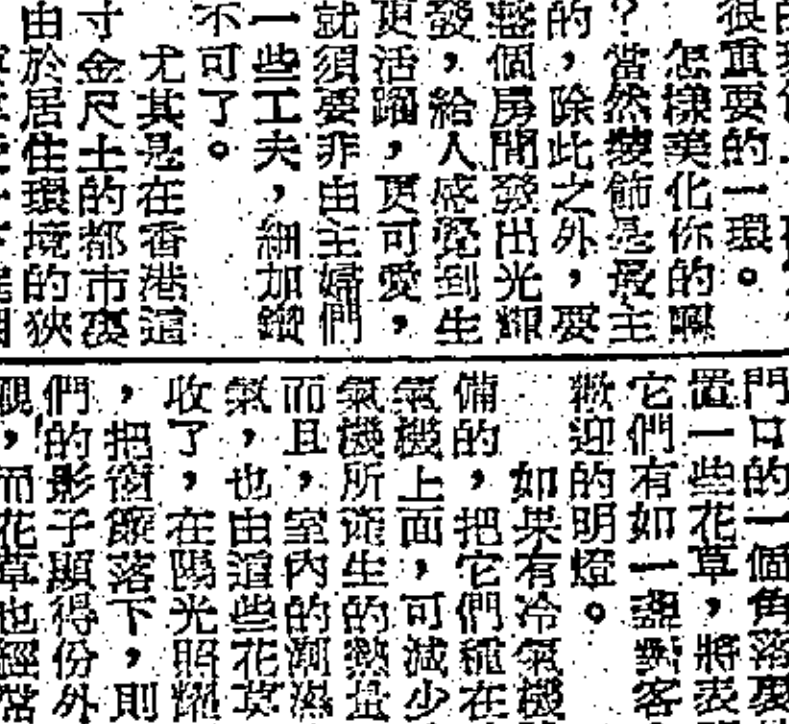 很重要的一環。
怎樣美化你的
？當然裝飾是最主
的，除此之外，要
整個房間發出光輝
發，給人感覺到生
更活躍，更可愛，
就須要非由主婦們
一些工夫，細加
不可了。
尤其是在香港這
寸金尺土的都市裏
由於居住環境的狹
門口的一個角落裏
置一些花草，將表
它們有如一盞對客
歡迎的明燈。
如果有冷氣機
備的，把它們種在
氣機上面，可減少
氣機所產生的熱量
而且，室內的潮濕
氣，也由這些花草
收了，在陽光照耀
，把窗簾落下，則
們的影子顯得份外
觀，而花草也經常